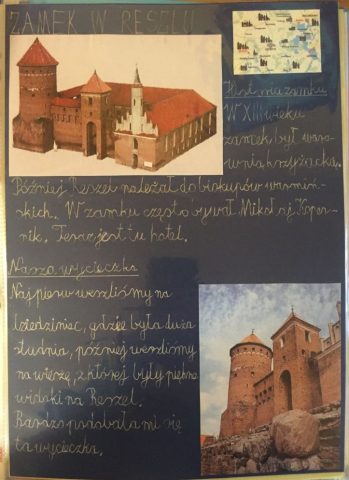 ZAMEK W RESZLU
Historia zamku
W XIII wieku
zamek był waro-
wnią krzyżacką.
Później Reszel należał do biskupów warmiń-
skich. W zamku często bywał Mikołaj Koper-
nik. Teraz jest tu hotel.
Nasza wycieczka
Najpierw weszliśmy na
dziedziniec, gdzie była duża
studnia, później weszliśmy
na wieżę, z której były piękne
widoki na Reszel.
Bardzo podobała mi się
ta wycieczka.